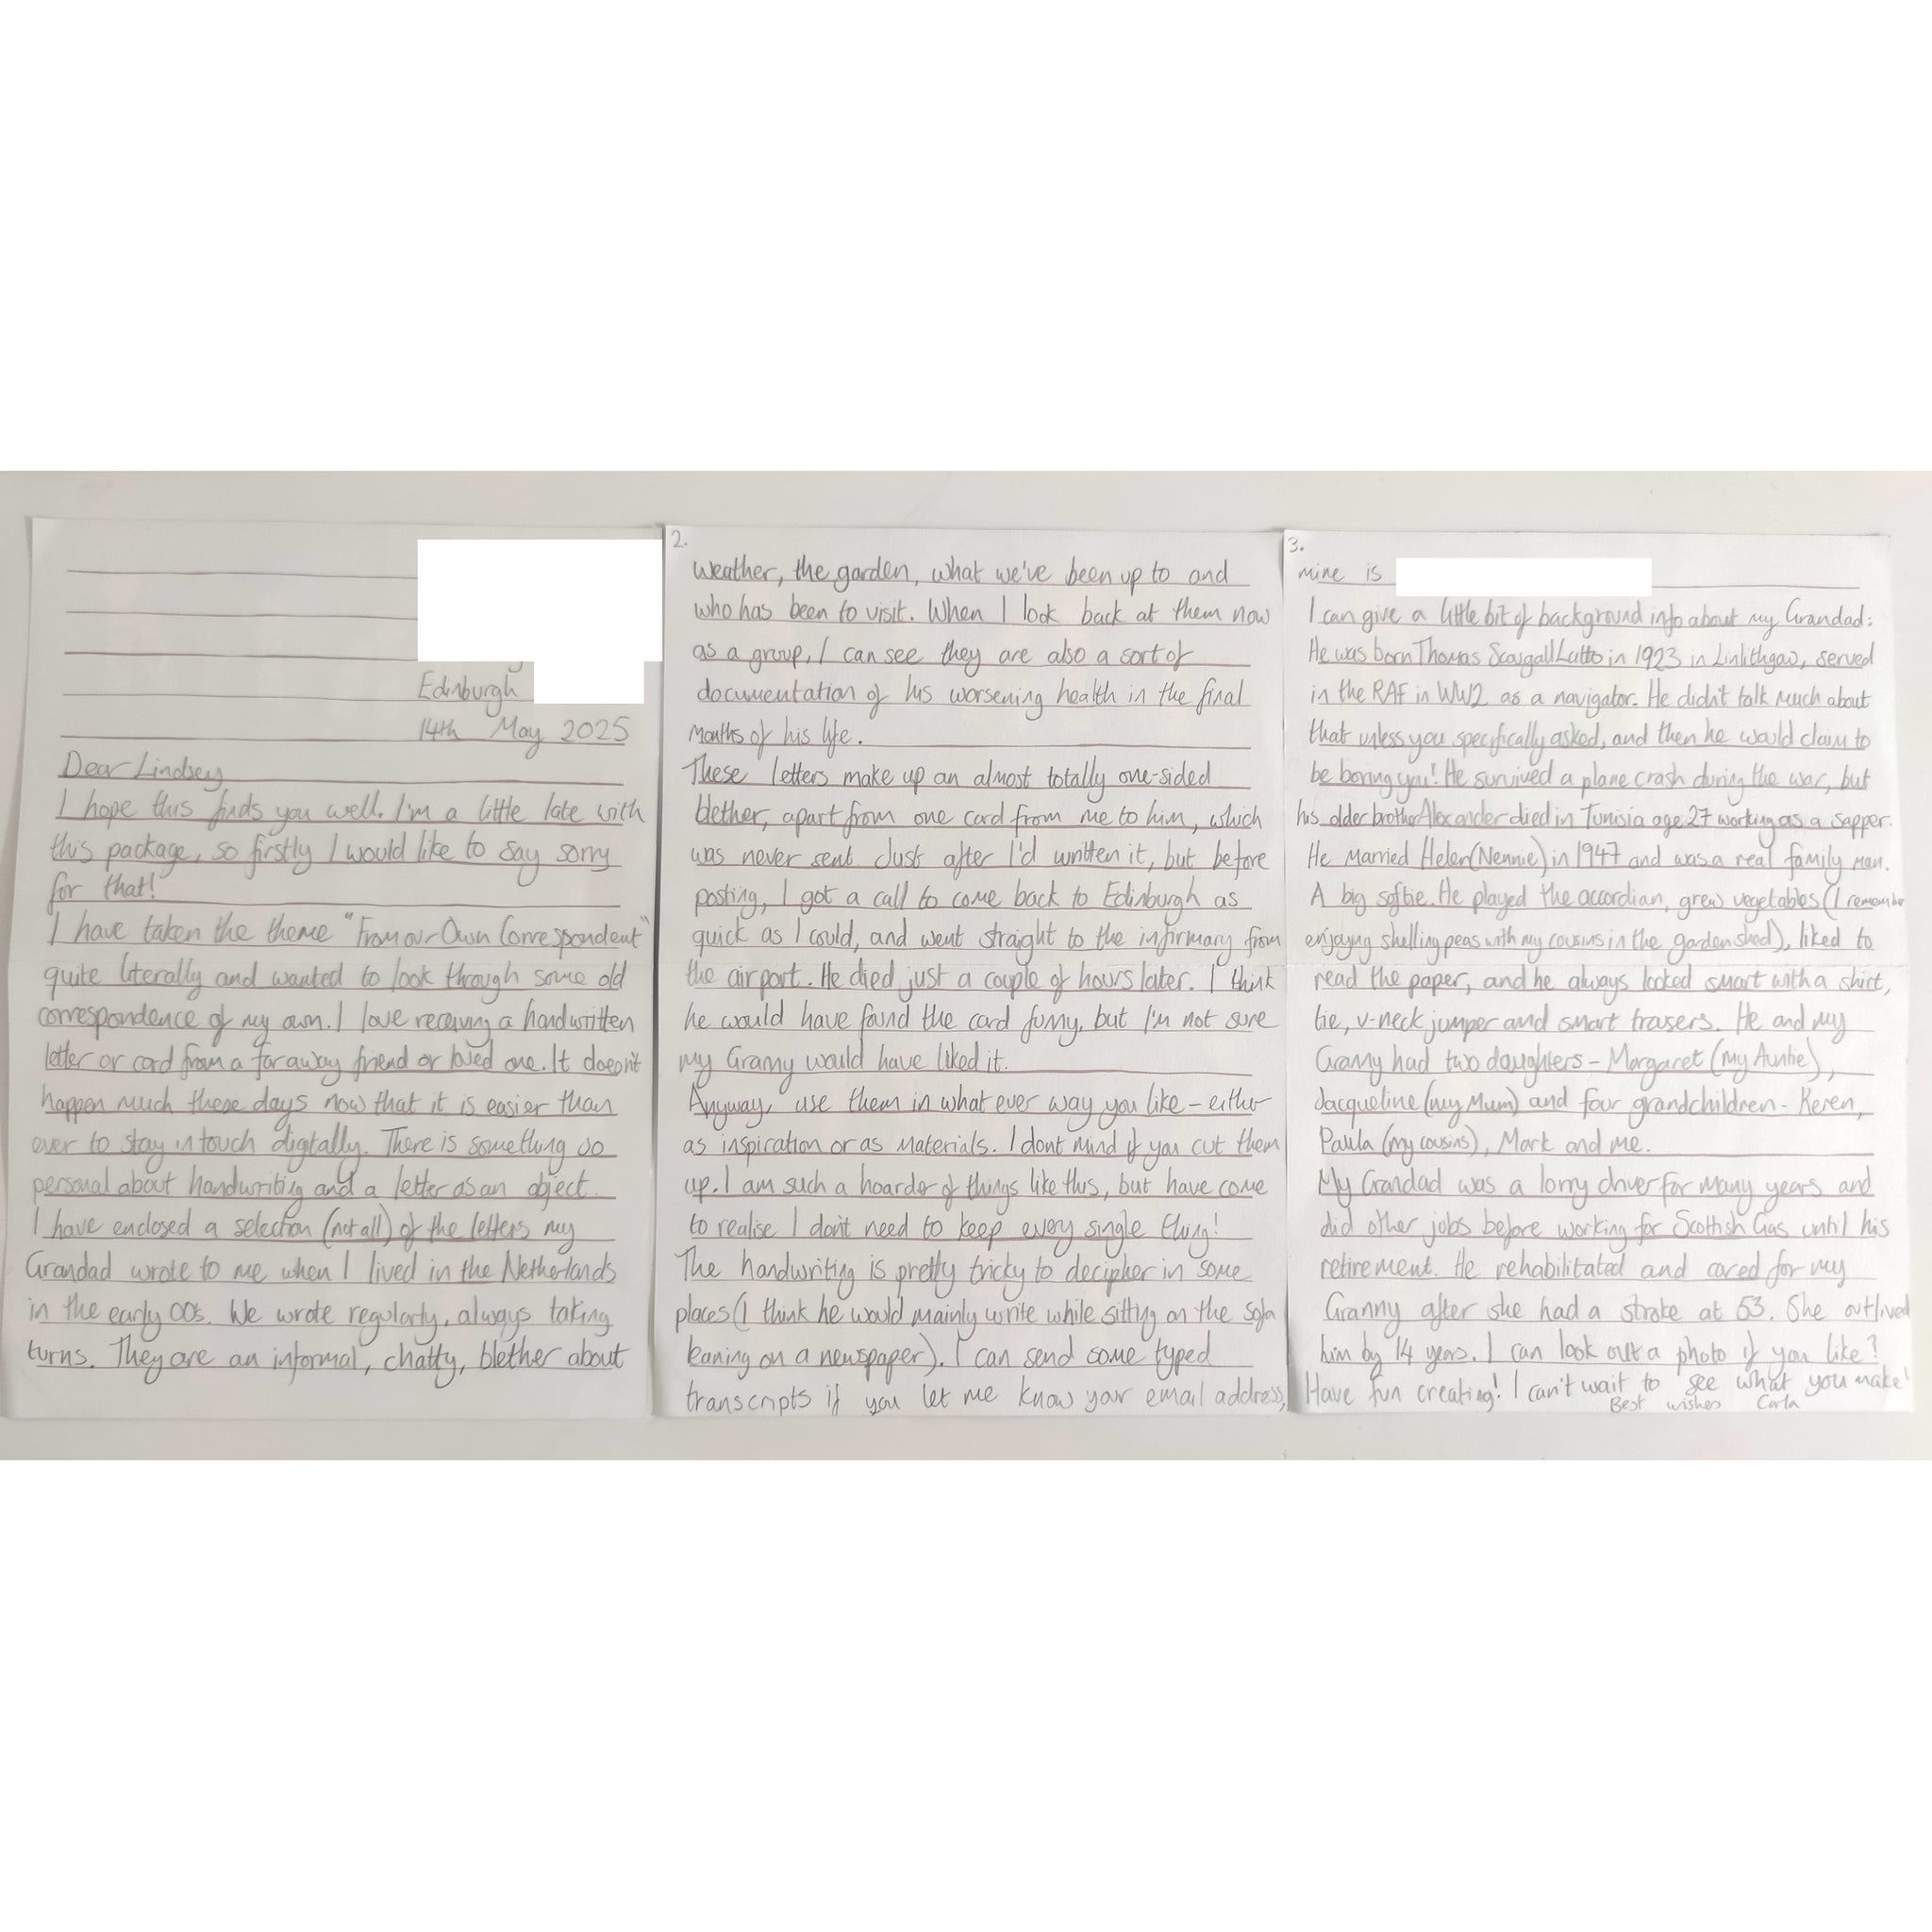 Edinburgh
14th May 2025
Dear Lindsey
I hope this finds you well. I'm a little late with
this package, so firstly I would like to say sorry
for that!
I have taken the theme "From our Own Correspondent"
quite literally and wanted to look through some old
correspondence of my own. I love receiving a handwritten
letter or card from a far away friend or loved one. It doesn't
happen much these days now that it is easier than
ever to stay in touch digitally. There is something so
personal about handwriting and a letter as an object.
I have enclosed a selection (not all) of the letters my
Grandad wrote to me when I lived in the Netherlands
in the early 00s. We wrote regularly, always taking
turns. They are an informal, chatty, blether about
2.
weather, the garden, what we've been up to and
who has been to visit. When I look back at them now
as a group, I can see they are also a sort of
documentation of his worsening health in the final
months of his life.
These letters make up an almost totally one-sided
blether, apart from one card from me to him, which
was never sent. Just after I'd written it, but before
posting, I got a call to come back to Edinburgh as
quick as I could, and went straight to the infirmary from
the airport. He died just a couple of hours later. I think
he would have found the card funny, but I'm not sure
my Granny would have liked it.
Anyway, use them in what ever way you like - either
as inspiration or as materials. I dont mind if you cut them
up. I am such a hoarder of things like this, but have come
to realise I don't need to keep every single thing!
The handwriting is pretty tricky to decipher in some
places (I think he would mainly write while sitting on the sofa
leaning on a newspaper). I can send some typed
transcripts if you let me know your email address,
3.
mine is
I can give a little bit of background info about my Grandad:
He was born Thomas Latto in 1923 in Linlithgow, served
in the RAF in WW2 as a navigator. He didn't talk much about
that unless you specifically asked, and then he would claim to
be boring you! He survived a plane crash during the war, but
his older brother Alexander died in Tunisia age 27 working as a sapper.
He married Helen (Nennie) in 1947 and was a real family man.
A big softie. He played the accordian, grew vegetables (I remember
enjoying shelling peas with my cousins in the garden shed), liked to
read the paper, and he always looked smart with a shirt,
tie, v-neck jumper and smart trousers. He and my
Granny had two daughters - Margaret (my Auntie),
Jacqueline (my Mum) and four grandchildren - Keren,
Paula (my cousins), Mark and me.
My Grandad was a lorry driver for many years and
did other jobs before working for Scottish Gas until his
retirement. He rehabilitated and cared for my
Granny after she had a stroke at 53. She outlived
him by 14 years. I can look out a photo if you like?
Have fun creating! I can't wait to see what you make!
Best wishes Carla